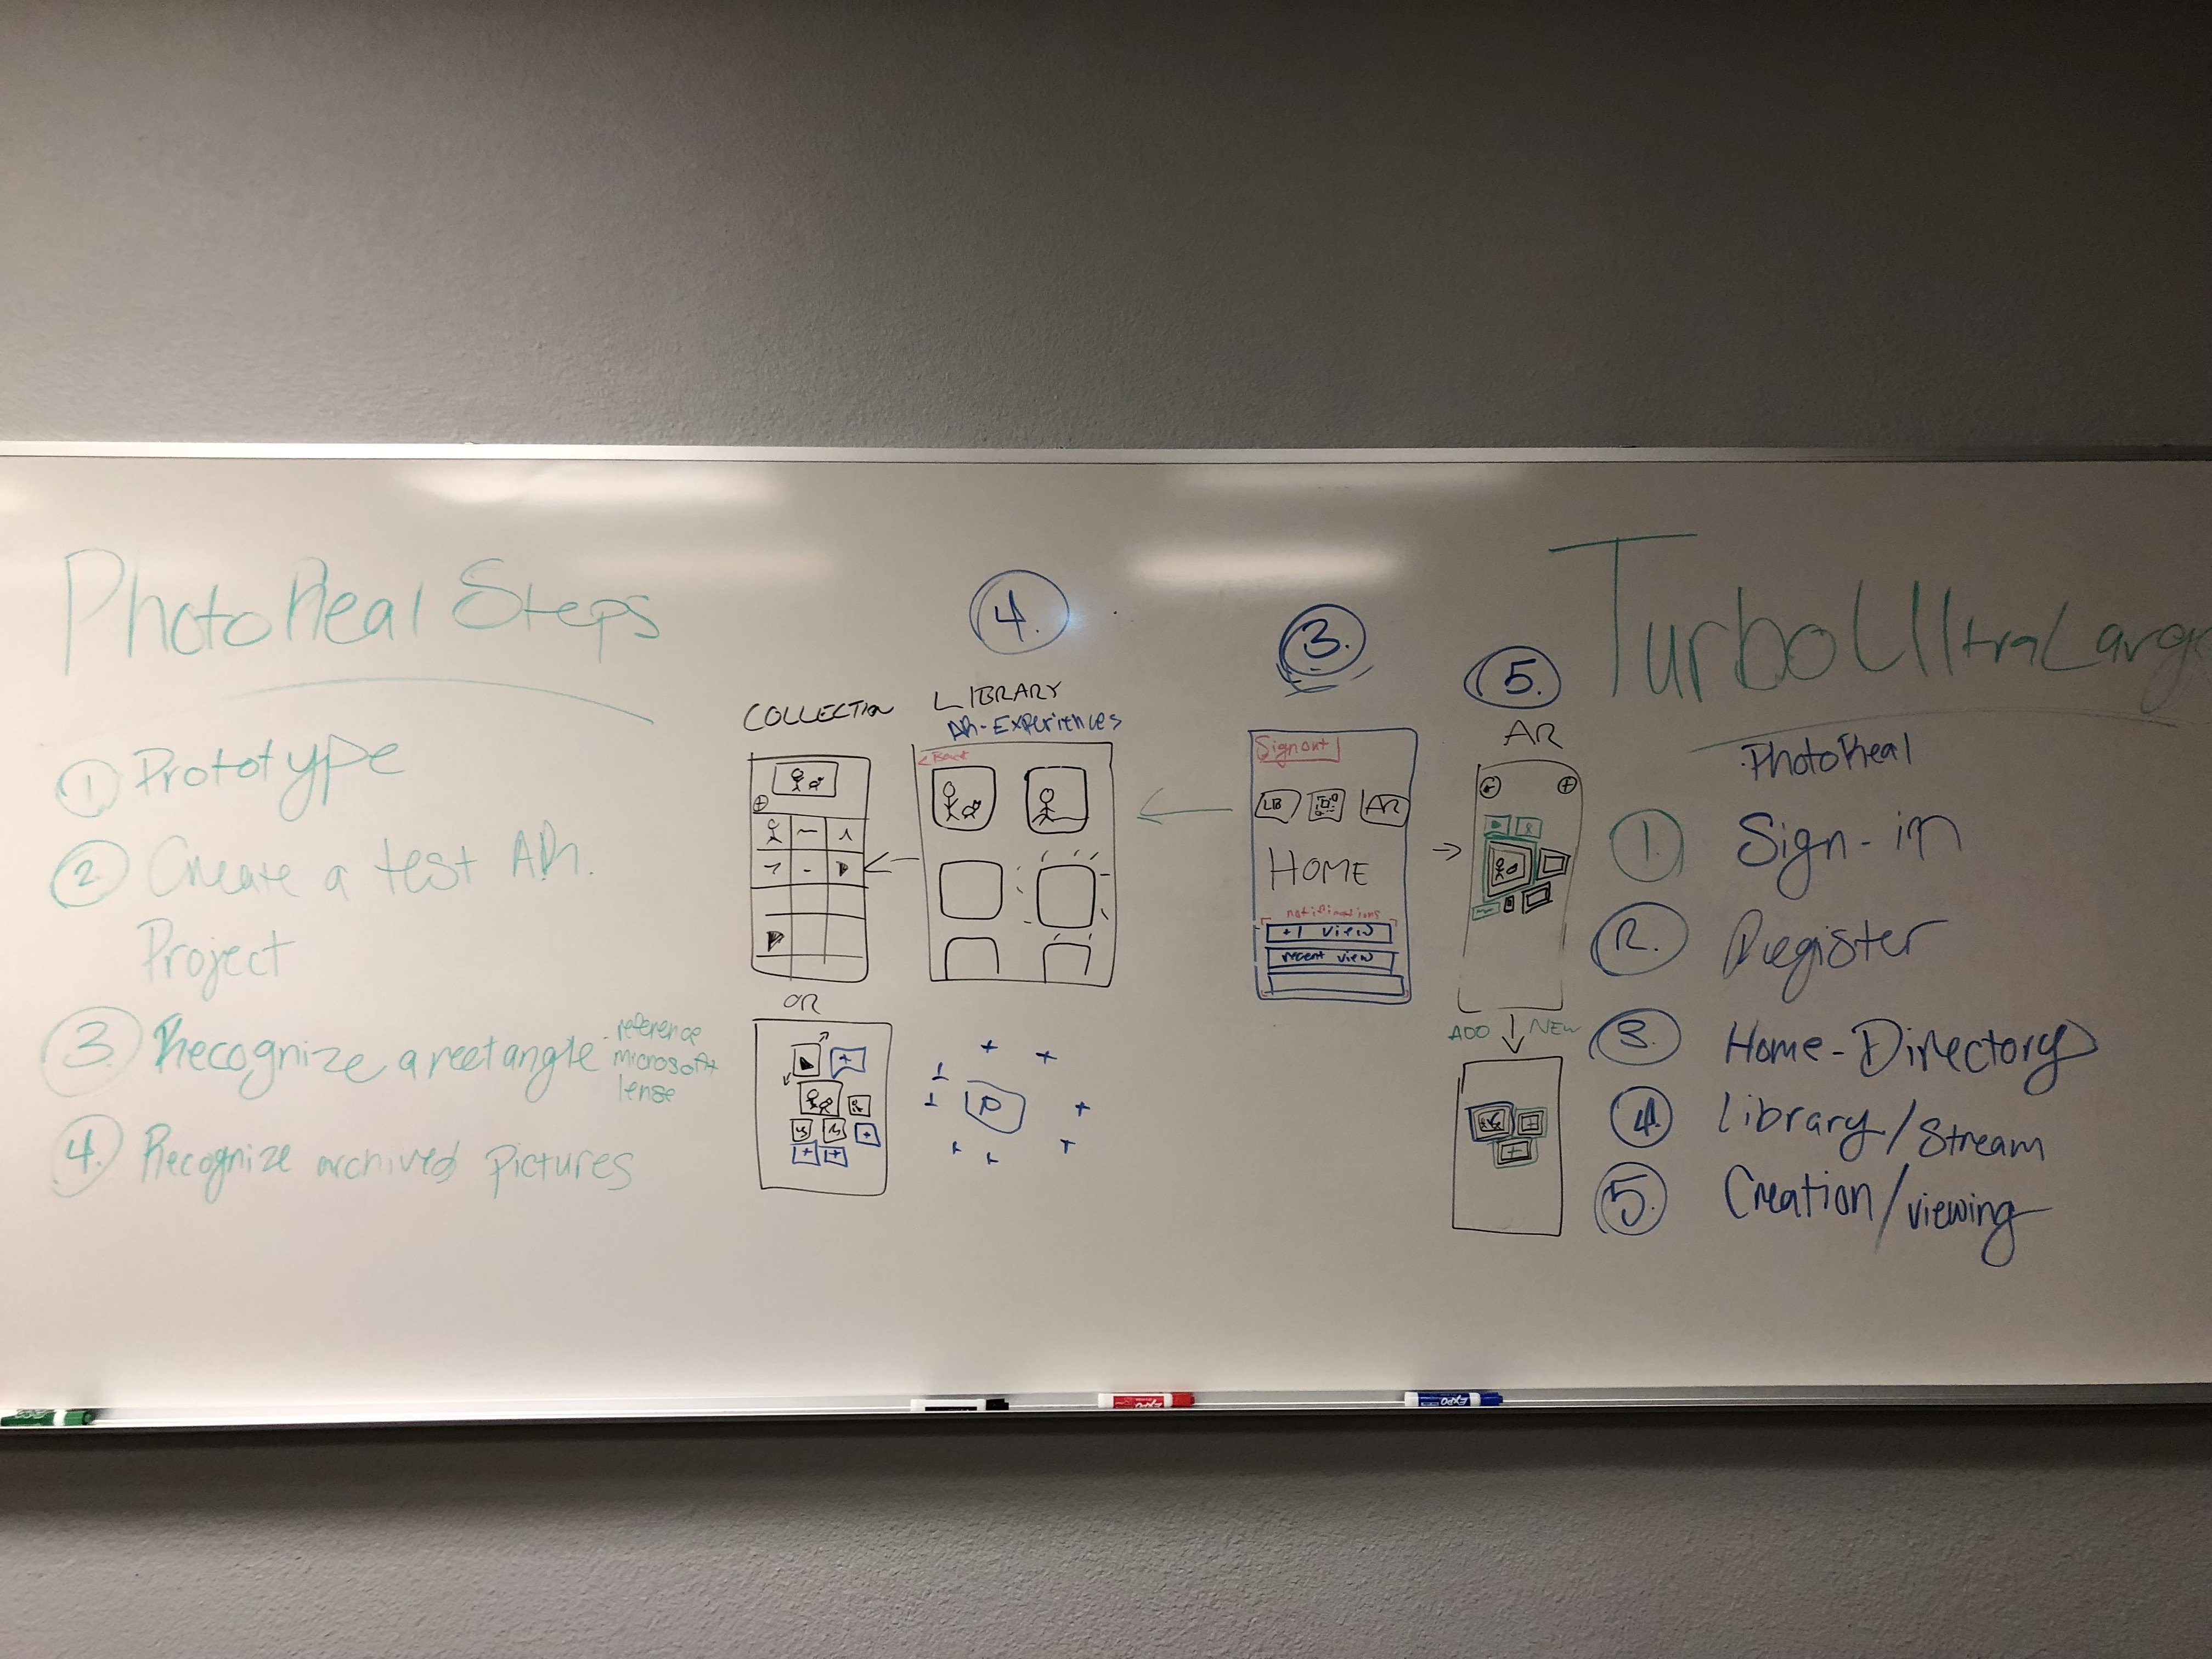 PhotoReal Steps
1. Prototype
2. Create a test AR.
Project
3. Recognize a rectangle - reference
microsoft
lense
4. Recognize archived pictures
4.
COLLECTION
LIBRARY
AR-Experiences
< Back
OR
3.
Signout
LB
AR
HOME
notifications
+1 view
recent view
5.
AR
ADD NEW
TurboUltraLarge
PhotoReal
1. Sign-in
2. Register
3. Home-Directory
4. Library/Stream
5. Creation/viewing
EXPO
EXPO